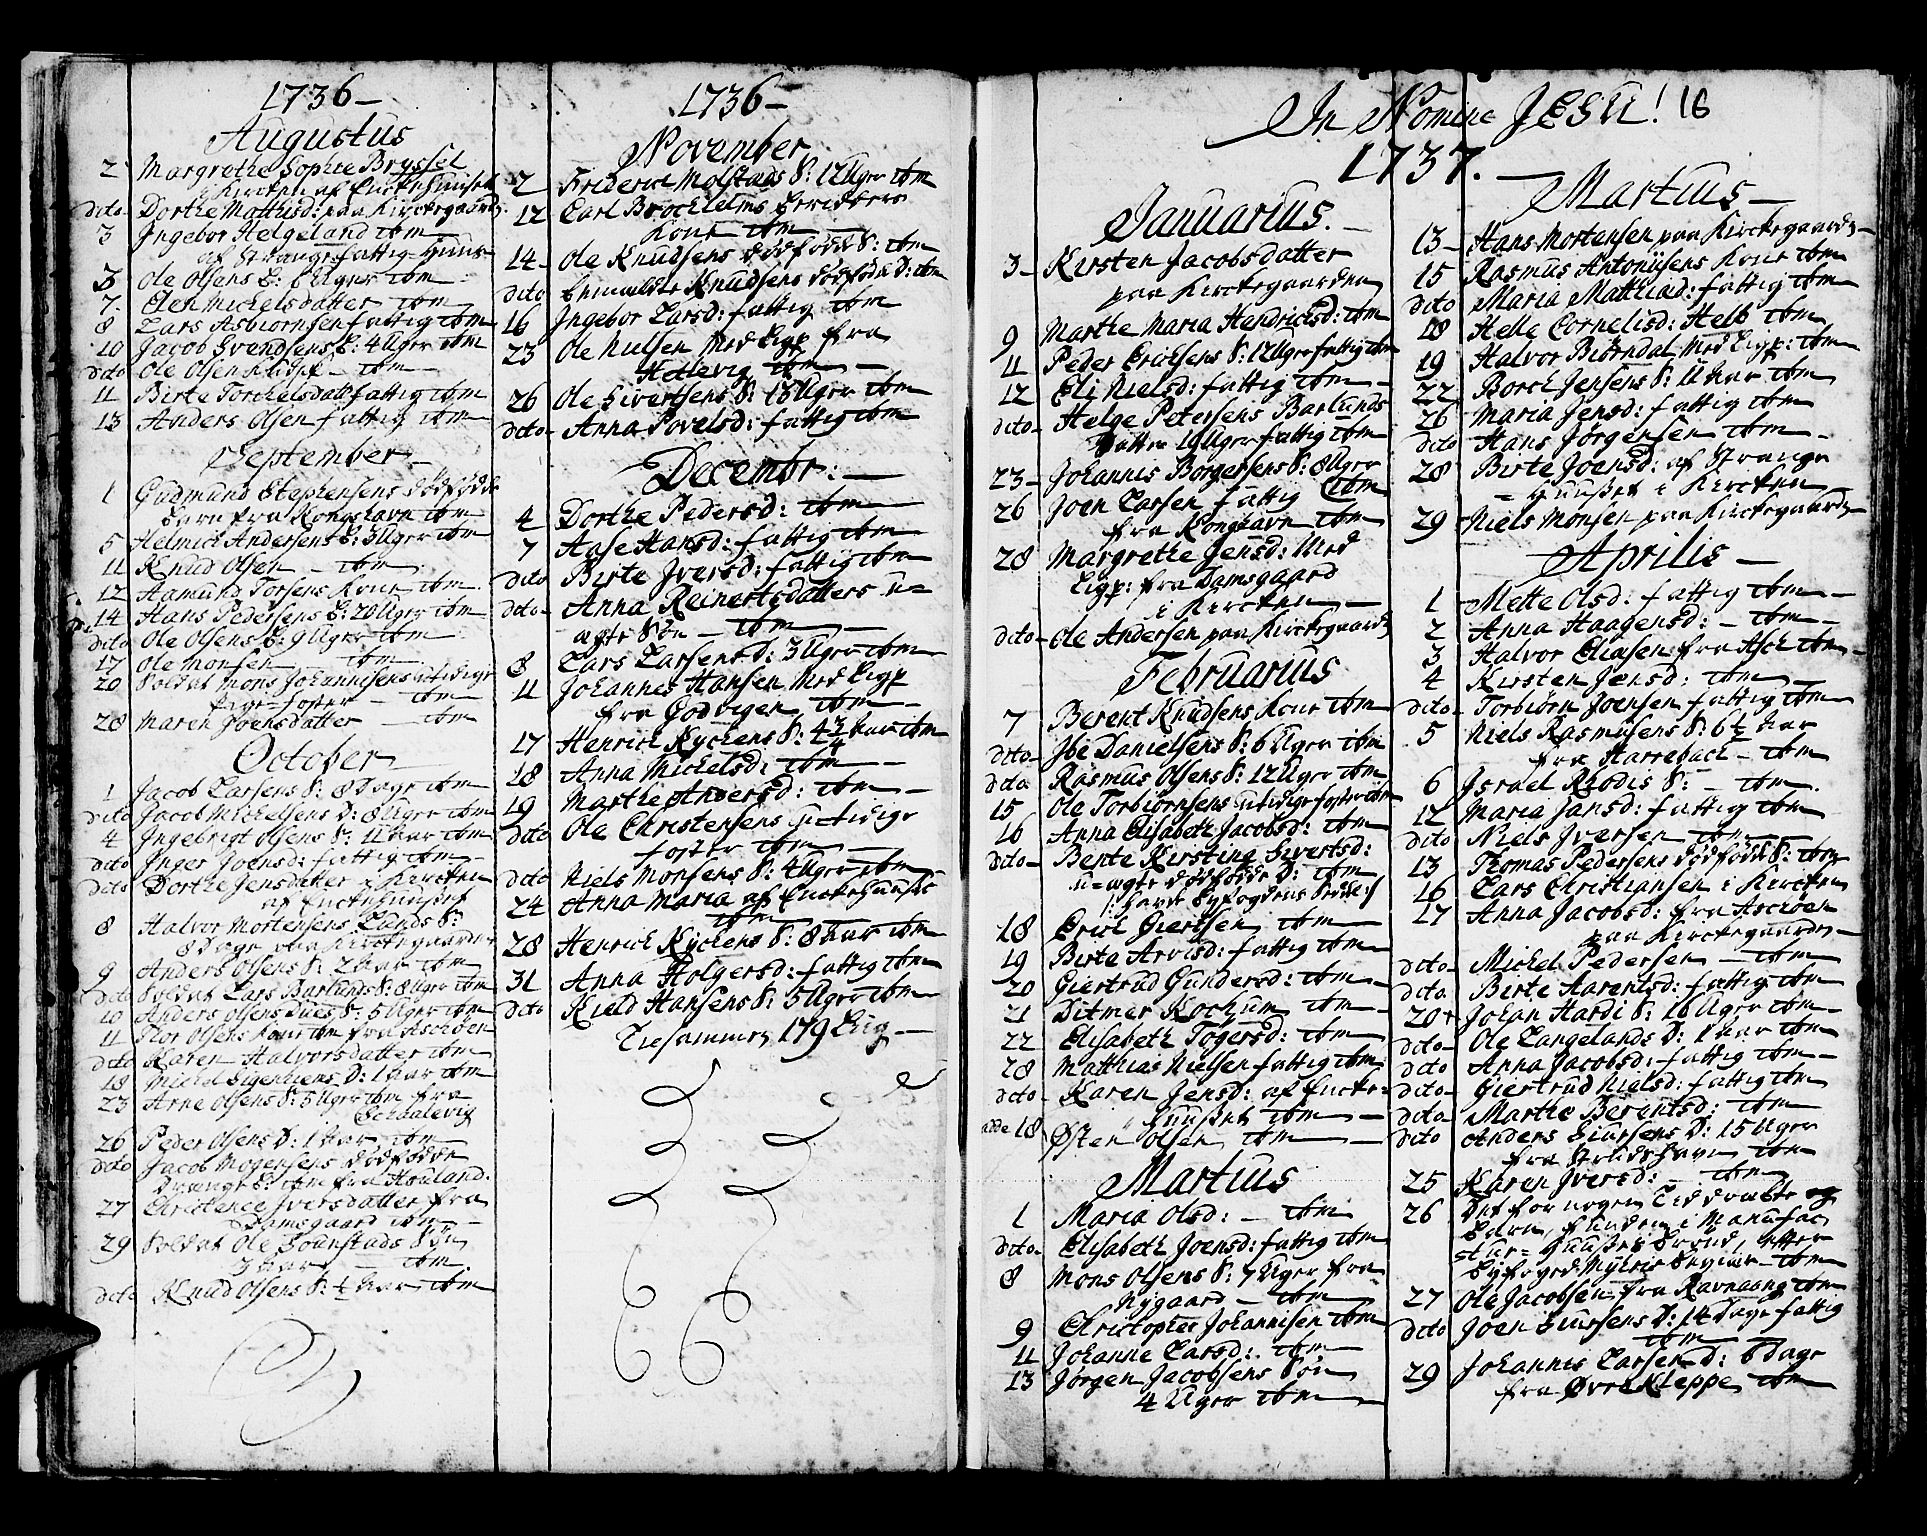 1736
Augustus
2 Margrethe Sophie Bryssel
i Kircken af Enckehuuset
dito Dorthe Mathisd: paa Kirckegaard
3 Ingebor Helgeland ibm
af Strange fattig-Huus
3 Ole Olsens B: 6 Uger ibm
7. Elen Michelsdatter ibm
8 Lars Asbiørnsen fattig ibm
10 Jacob Svendsens B: 4 Uger ibm
dito Ole Olsen ibm
11 Birte Torchelsdatt fattig ibm
13 Anders Olsen fattig ibm
September
1 Gudmund Stephensens dødfødde
barn fra Kongshavn ibm
5 Helmich Andersens B: 3 Uger ibm
11 Knud Olsen ibm
12 Aamund Torsens Kone ibm
14 Hans Pedersens B: 20 Uger ibm
dito Ole Olsens B: 9 Uger ibm
17 Ole Monsen ibm
20 Soldat Mons Johannisens utidige
Pige-foster ibm
28 Maren Joensdatter ibm
October
1 Jacob Larsens S: 8 Dage ibm
dito Jacob Michelsens D: 8 Uger ibm
4 Ingebrigt Olsens S: 11 Aar ibm
dito Inger Joensd: fattig ibm
dito Dorthe Jensdatter i Kircken
af Enckehuuset
8 Halvor Mortensens Lands S:
8 Dage paa Kirckegaarden
9 Anders Olsens S: 2 Aar ibm
dito Soldat Lars Barlunds S: 8 Uger ibm
10 Anders Olsens Dues S: 5 Uger ibm
11 Tlor Olsens Kone ibm fra Aschøen
dito Karen Halvorsdatter ibm
18 Michel D: 1 Aar ibm
23 Arne Olsens S: 5 Uger ibm fra
26 Peder Olsens D: 1 Aar ibm
dito Jacob Mogensens dødfødde
Drænge B: ibm fra Houland
27 Christence Iversdatter fra
Damsgaard ibm
29 Soldat Ole Søn
3 Aar ibm
dito Knud Olsens S: ½ Aar ibm
1736
November
2 Friderich Molstads S: 12 Uger ibm
12 Carl Brochhelms
Kone ibm
14 Ole Knudsens dødfødde S: ibm
dito bemeldte Knudsens dødfødde D: ibm
16 Ingebor Larsd: fattig ibm
23 Ole Nielsen Med Ligp fra
Hellevig ibm
26 Ole Sivertsens S: 18 Uger ibm
dito Anna Povelsd: fattig ibm
Decembr:
4 Dorthe Pedersd: ibm
7 Aase Hansd: fattig ibm
dito Birte Iversd: fattig ibm
dito Anna Reinertsdatters u-
ægte Søn ibm
8 Lars Larsens D: 3 Uger ibm
11 Johannes Hansen Med Ligp
fra Godvigen ibm
17 Henrich Kyckens S: 4¾ Aar ibm
18 Anna Michelsd: ibm
19 Marthe Andersd: ibm
dito Ole Christensens utidige
foster ibm
dito Niels Monsens S: 4 Uger ibm
24 Anna Maria af Enckehuuset
ibm
28 Henrich Kyckens S: 8 Aar ibm
31 Anna Holgersd: fattig ibm
dito Kield Hansens S: 5 Uger ibm
Tilsammen 179 Liig
In Nomine JESU! 16
1737.
Januarius.
3 Kirsten Jacobsdatter
paa Kirckegaarden
9 Marthe Maria Hendrichsd: ibm
11 Peder Erichsens S: 12 Uger fattig ibm
12 Eli Nielsd: fattig ibm
dito Helge Petersens Barlunds
Datter 10 Uger fattig ibm
23 Johannis Borgersens S: 8 Uger
ibm
26 Joen Larsen fattig
fra Kongshavn ibm
28 Margrethe Jensd: Med
Ligp: fra Damsgaard
i Kircken
dito Ole Andersen paa Kirckegaard
Februarius
7 Berent Knudsens Kone ibm
dito Ibe Danielsens S: 6 Uger ibm
dito Rasmus Olsens S: 12 Uger ibm
15 Ole Torbiørnsens utidige foster ibm
16 Anna Elisabeth Jacobsd: ibm
dito Bente Kirstine Sivertsd:
u-ægte dødfødde D: ibm
18 Erich Giertsen ibm
19 Birte Arvisd: fattig ibm
20 Giertrud Gundersd: ibm
21 Ditmer Kochum ibm
22 Elisabeth Togersd: ibm
28 Mathias Nielsen fattig ibm
dito Karen Jensd: af Encke-
Huuset ibm
18 Østen Olsen ibm
Martius
1 Maria Olsd: ibm
dito Elisabeth Joensd: fattig ibm
8 Mons Olsens S: 7 Uger fra
Nygaard ibm
9 Christopher Johannisen ibm
11 Johanne Larsd: ibm
13 Jørgen Jacobsens Søn
4 Uger ibm
Martius
13 Hans Mortensen paa Kirckegaard
15 Rasmus Antonisens Kone ibm
dito Maria Mathiad: fattig ibm
18 Helle Cornelisd: Helb ibm
19 Halvor Biørndal Med Ligp: ibm
22 Borch Jensens S: 11 Aar ibm
26 Maria Jensd: fattig ibm
dito Hans Jørgensen ibm
28 Birte Joensd: af Strange
Huuset i Kircken
29 Niels Monsen paa Kirckegaard
Aprilis
1 Mette Olsd: fattig ibm
2 Anna Haagensd: ibm
3 Halvor Eliasen fra Asch ibm
4 Kirsten Jensd: ibm
dito Torbiørn Joensen fattig ibm
5 Niels Rasmusens S: 6½ Aar
fra Harreback ibm
6 Israel Rodis S: ibm
12 Maria Jansd: fattig ibm
dito Niels Iversen ibm
13 Thomas Pedersens dødfødde S: ibm
16 Lars Christiansen i Kircken
17 Anna Jacobsd: fra Aschøen
paa Kirckegaard
dito Michel Pedersen ibm
dito Birte Aarentsd: fattig ibm
20 Johan Hardi S: 18 Uger ibm
dito Ole Langelands D: 1 Aar ibm
dito Anna Jacobsd: fattig ibm
dito Giertrud Nielsd: fattig ibm
dito Marthe Berentsd: ibm
dito Anders Siursens D: 15 Uger
fra Strudshavn ibm
25 Karen Iversd: ibm
26 Det for nogen Tid dræbte
Barn, funden i Manufac
tur-Huuses Brønd, efter
Byfoged ibm
27 Ole Jacobsen fra Ravnaang ibm
dito Joen Siursens D: 14 Dage fattig
ibm
29 Johannes Larsens D: 6 Dage
fra Øvre Kleppe ibm